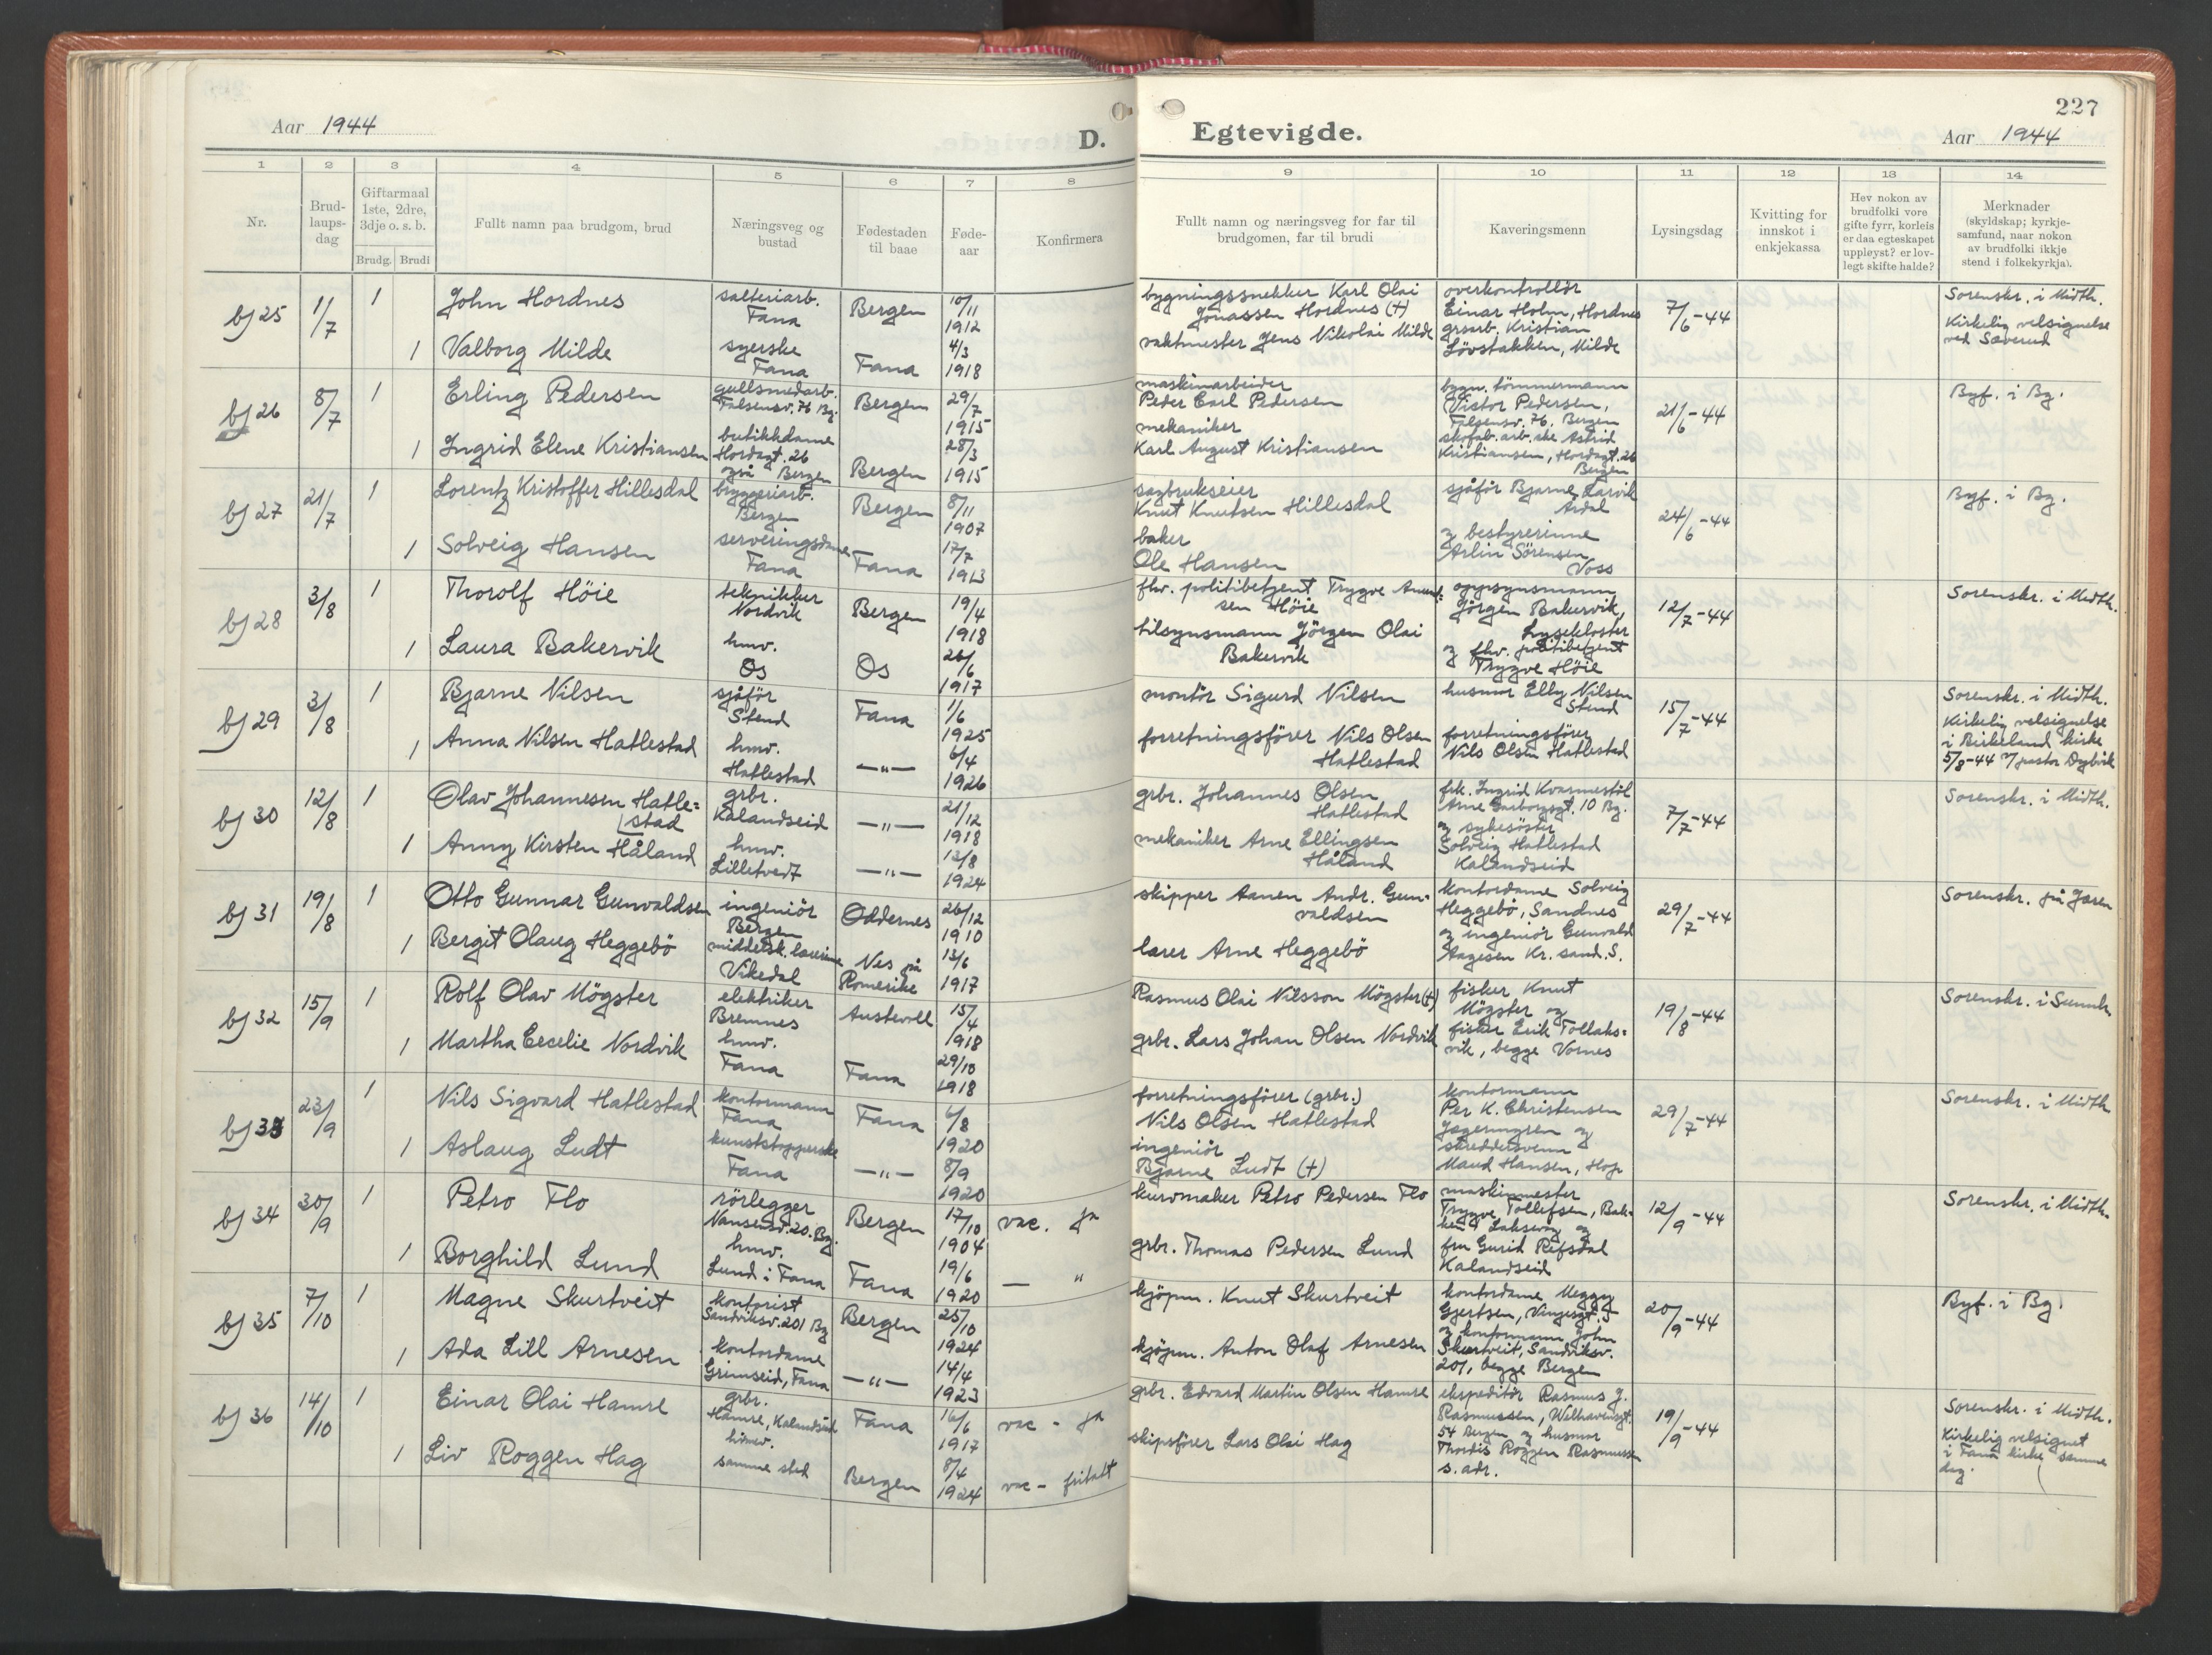 Aar 1944
D. Egtevigde.
227
Aar 1944
1 2 3 4 5 6 7 8 9 10 11 12 13 14
Nr.
Brud-
laups-
dag
Giftarmaal
1ste, 2dre,
3dje o. s. b.
Brudg. Brudi
Fullt namn paa brudgom, brud
Næringsveg og
bustad
Fødestaden
til baae
Føde-
aar
Konfirmera
Fullt namn og næringsveg for far til
brudgomen, far til brudi
Kaveringsmenn
Lysingsdag
Kvitting for
innskot i
enkjekassa
Hev nokon av
brudfolki vore
gifte fyrr, korleis
er daa egteskapet
uppløyst? er lov-
legt skifte halde?
Merknader
(skyldskap; kyrkje-
samfund, naar nokon
av brudfolki ikkje
stend i folkekyrkja).
bj 25
1/7
1
John Hordnes
Fana
Bergen
10/11
1912
bygningssnekker Karl Olai
Jonassen Hordnes (+)
overkontrollör
Einar Holm, Hordnes
grsarb. Kristian
Lövstakken, Milde
7/6-44
Sorenskr. i Midth.
Kirkelig velsignelse
ved Sæverud
1
Valborg Milde
syerske
Fana
Fana
4/3
1918
vaktmester Jens Nikolai Milde
bj 26
8/7
1
Erling Pedersen
gullsmedarb.
Falsensv. 76 Bg.
Bergen
29/7
1915
maskinarbeider
Peder Carl Pedersen
bygn. tömmermann
Victor Pedersen,
Falsensv. 76. Bergen
skofab. arb. ske Astrid
Kristiansen, Hordagt. 26
Bergen
21/6-44
Byf. i Bg.
1
Ingrid Elene Kristiansen
butikkdame
Hordagt. 26
også Bergen
Bergen
28/3
1915
mekaniker
Karl August Kristiansen
bj 27
21/7
1
Lorentz Kristoffer Hillesdal
bryggeriarb.
Bergen
Bergen
8/11
1907
sagbrukseier
Knut Knutsen Hillesdal
sjåför Bjarne Larvik
Årdal
og bestyrerinne
Arlin Sörensen
Voss
24/6-44
Byf. i Bg.
1
Solveig Hansen
serveringsdame
Fana
Fana
17/7
1913
baker
Ole Hansen
bj 28
3/8
1
Thorolf Höie
tekniker
Nordvik
Bergen
19/4
1918
fhv. politibetjent Trygve Amund-
sen Höie
oppsynsmann
Jörgen Bakervik,
Lysekloster
og fhv. politibetjent
Trygve Höie
12/7-44
Sorenskr. i Midth.
1
Laura Bakervik
hmv.
Os
Os
26/6
1917
tilsynsmann Jörgen Olai
Bakervik
bj 29
3/8
1
Bjarne Nilsen
sjåför
Stend
Fana
1/6
1925
montör Sigurd Nilsen
husmor Elly Nilsen
Stend
forretningsförer
Nils Olsen Hatlestad
15/7-44
Sorenskr. i Midth.
Kirkelig velsignelse
i Birkeland kirke
5/8-44 v/ pastor Dybvik
1
Anna Nilsen Hatlestad
hmv.
Hatlestad
—"—
6/4
1926
forretningsförer Nils Olsen
Hatlestad
bj 30
12/8
1
Olav Johannesen Hatle=
stad
grbr.
Kalandseid
—"—
21/12
1918
grbr. Johannes Olsen
Hatlestad
frk. Ingrid Kvarmestöl
Arne Garborgsgt. 10 Bg.
og sykesöster
Solveig Hatlestad
Kalandseid
7/7-44
Sorenskr. i Midth.
1
Anny Kirsten Håland
hmv.
Lilletvedt
—"—
12/8
1924
mekaniker Arne Ellingsen
Håland
bj 31
19/8
1
Otto Gunnar Gunvaldsen
ingeniör
Bergen
Oddernes
26/12
1910
skipper Aanen Andr. Gun-
valdsen
kontordame Solveig
Heggebö, Sandnes
og ingeniör Gunvald
Aagesen Kr. sand. S.
29/7-44
Sorenskr. på Jæren
1
Bergit Olaug Heggebö
Vikedal
Nes på
Romerike
13/6
1917
lærer Arne Heggebö
bj 32
15/9
1
Rolf Olav Mögster
elektriker
Bremnes
Austevoll
15/4
1918
Rasmus Olai Nilsson Mögster (+)
fisker Knut
Mögster og
fisker Erik Tollaks=
vik, begge Vornes
19/8-44
Sorenskr. i Sunnh.
1
Martha Cecelie Nordvik
hmv.
Fana
Fana
29/10
1918
grbr. Lars Johan Olsen Nordvik
bj 33
23/9
1
Nils Sigvard Hatlestad
kontormann
Fana
Fana
6/8
1920
forretningsförer (grbr.)
Nils Olsen Hatlestad
kontormann
Per K. Christensen
og
Maud Hansen, Hop
29/7-44
Sorenskr. i Midth.
1
Aslaug Ludt
kunststopperske
Fana
—"—
8/9
1920
ingeniör
Bjarne Ludt (+)
bj 34
30/9
1
Petro Flo
rörlegger
Nansensv. 20. Bg.
Bergen
17/10
1904
vac. ja
kurvmaker Petro Pedersen Flo
maskinmester
Trygve Tollefsen, Bak-
ken Laksevåg og
fru Gurid Refsdal
Kalandseid
12/9-44
Sorenskr. i Midth.
1
Borghild Lund
hmv.
Lund i Fana
Fana
19/6
1920
— "
grbr. Thomas Pedersen Lund
bj 35
7/10
1
Magne Skurtveit
kontorist
Sandviksv. 201 Bg
Bergen
25/10
1924
kjöpm. Knut Skurtveit
kontordame Meggy
Gjertsen, Vinjesgt. 5
og kontormann John
Skurtveit, Sandviksv.
201, begge Bergen
20/9-44
Byf. i Bg.
1
Ada Lill Arnesen
kontordame
Grimseid, Fana
—"—
14/4
1923
kjöpm. Anton Olaf Arnesen
bj 36
14/10
1
Einar Olai Hamre
grbr.
Hamre, Kalandseid
Fana
16/6
1917
vac - ja
grbr. Edvard Martin Olsen Hamre
ekspeditör Rasmus J.
Rasmussen, Welhavensgt.
54 Bergen og husmor
Thordis Roggen Rasmussen
s. adr.
19/9-44
Sorenskr. i Midth.
Kirkelig velsignet
i Fana kirke samme
dag.
1
Liv Roggen Hag
samme sted
Bergen
8/4
1924
vac - fritatt
skipsförer Lars Olai Hag